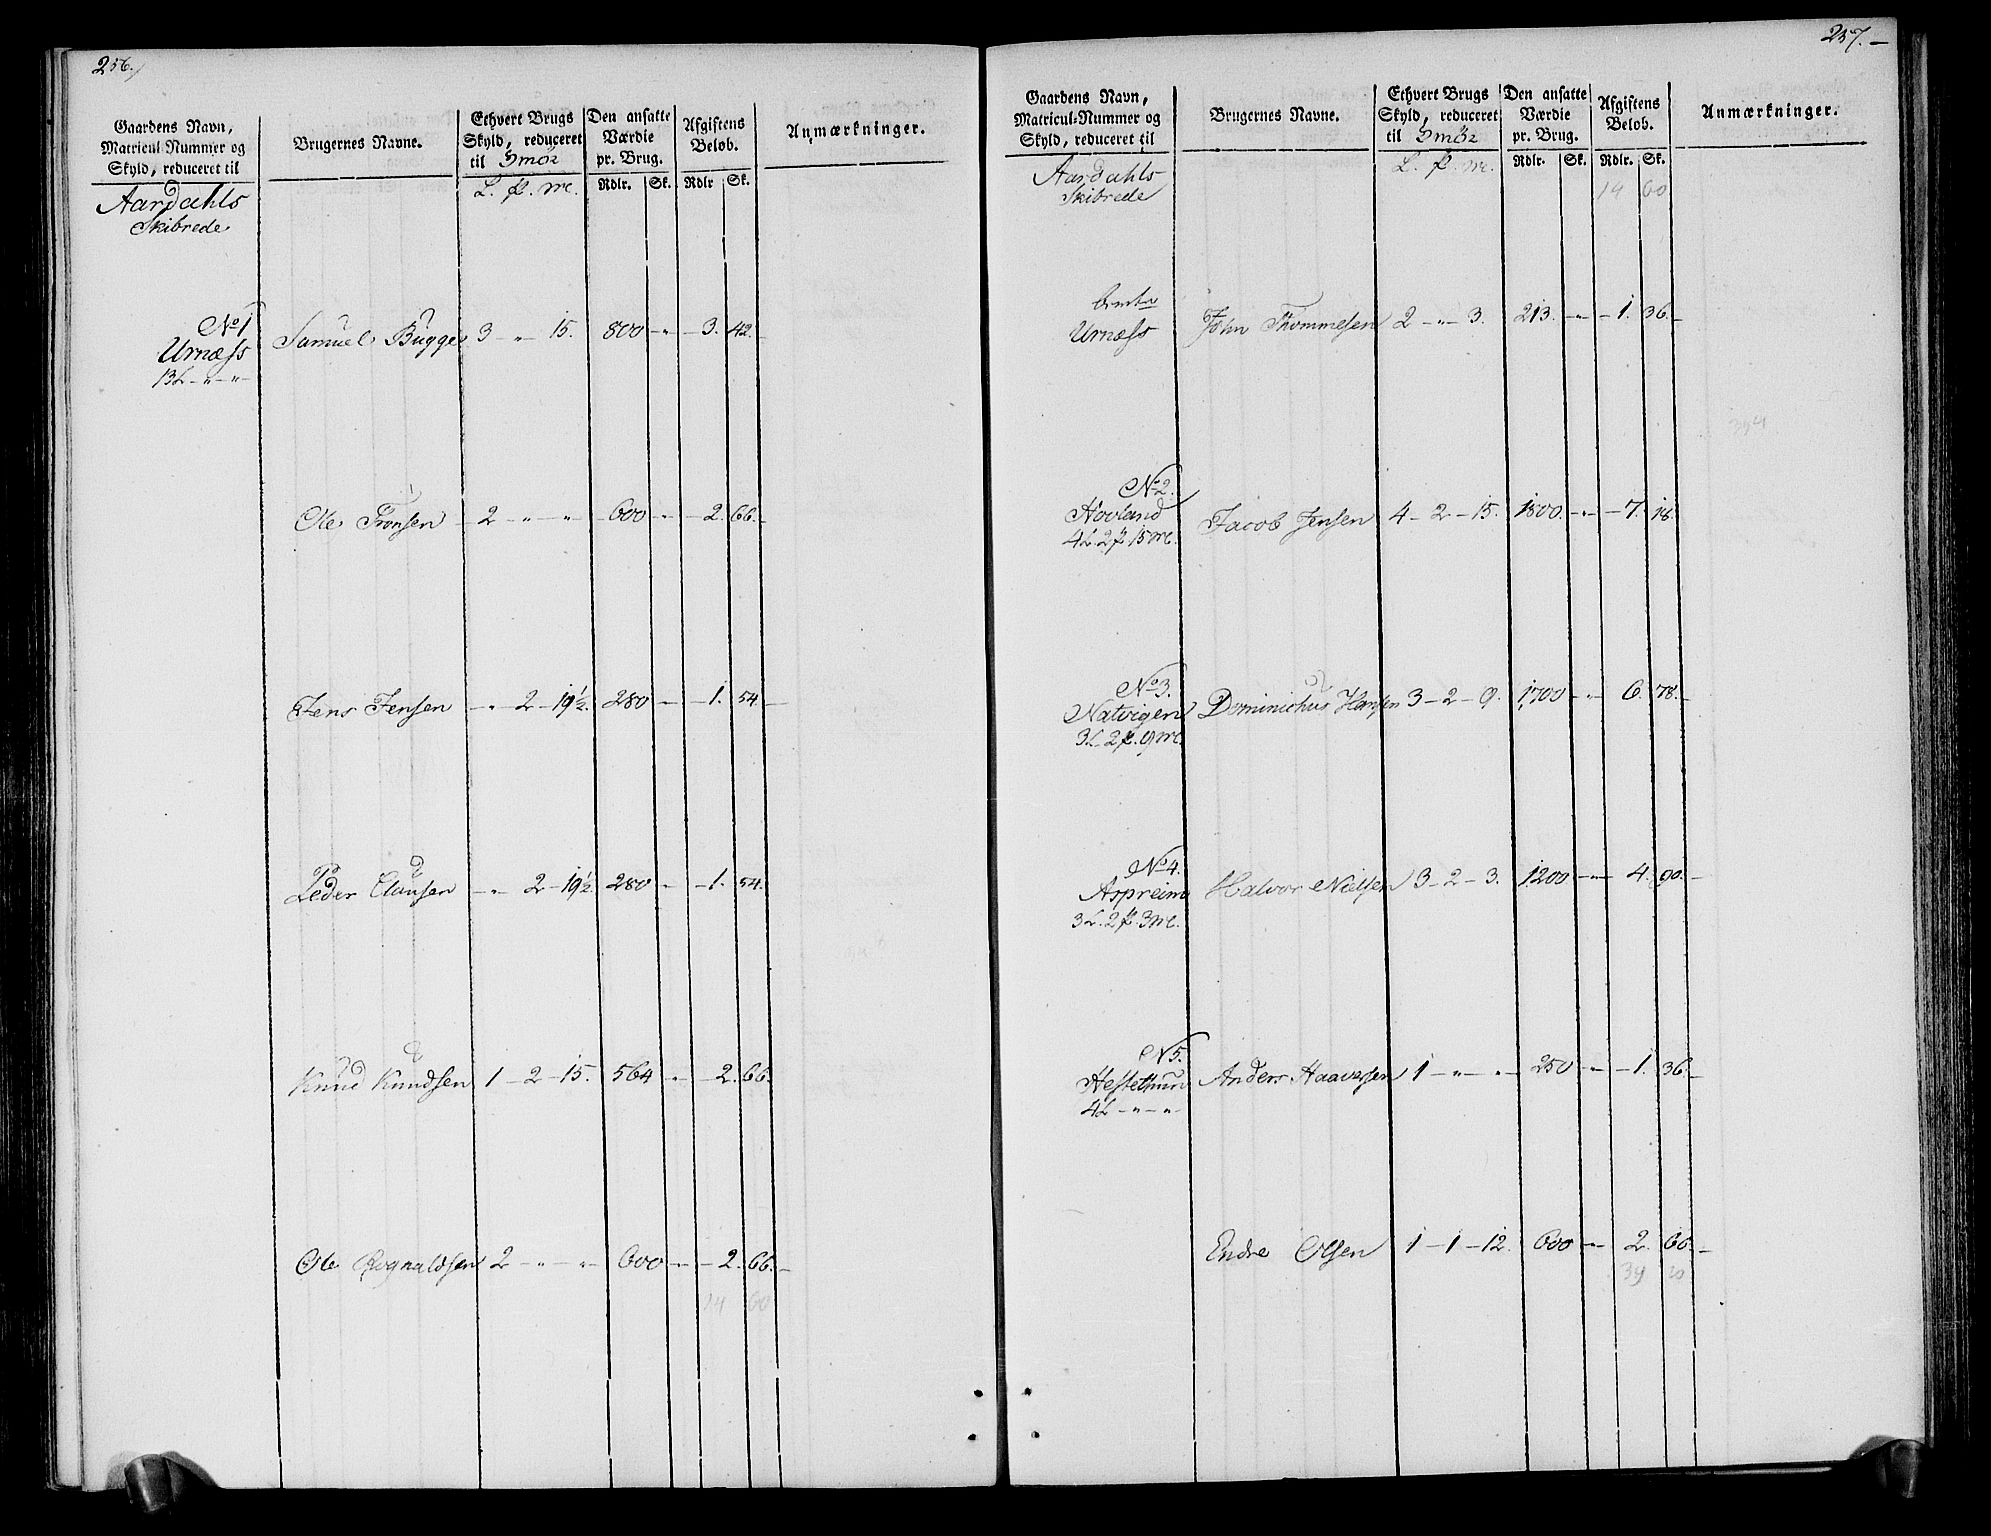 256.
Gaardens Navn, Matricul-Nummer og Skyld, reduceret til
Brugernes Navne.
Ethvert Brugs Skyld, reduceret til Smör
Den ansatte Værdie pr. Brug.
Afgiftens Beløb.
Anmærkninger.
L. ℔. mc. Rdlr. Sk. Rdlr Sk.
Aardahls
Skibrede
No 1
Urnæss Samuel Bugge 3 - " 15. 800 - " - 3. 42.
13 L - " - " -
Ole Tronsen 2 - " - " - 600 - " - 2. 66.
Jens Jensen - " 2 - 19½. 280 - " - 1. 54.
Peder Clausen - " 2 - 19½ 280 - " - 1. 54.
Knud Knudsen 1 - 2 - 15. 564 - " - 2. 66.
Ole Rognaldsen 2 - " - " - 600 - " - 2. 66.
14 60
257.
Gaardens Navn, Matricul-Nummer og Skyld, reduceret til
Brugernes Navne.
Ethvert Brugs Skyld, reduceret til Smör
Den ansatte Værdie pr. Brug.
Afgiftens Beløb.
Anmærkninger.
L. ℔. mc. Rdlr. Sk. Rdlr. Sk.
Aardahls
Skibrede
14 60
Urnæss John Thommesen 2 - " - 3. 213. - " - 1. 36.
394
No 2.
Hovland Jacob Jensen 4 - 2 - 15. 1800. - " - 7. 18.
4 L. 2 ℔ 15 mc.
No 3.
Natvigen Dominichus Hansen 3 - 2 - 9. 1700 - " - 6. 78.
3 L. 2 ℔. 9 mc.
No 4.
Aspreim Halvor Nielsen 3 - 2 - 3. 1200 - " - 4. 90.
3 L. 2 ℔. 3 mc.
N 5.
Hestethun Anders Haaversen 1 - " - " - 250 - " - 1. 36.
4 L - " - " -
Endre Olsen 1 - 1 - 12. 600 - " - 2. 66.
39 20